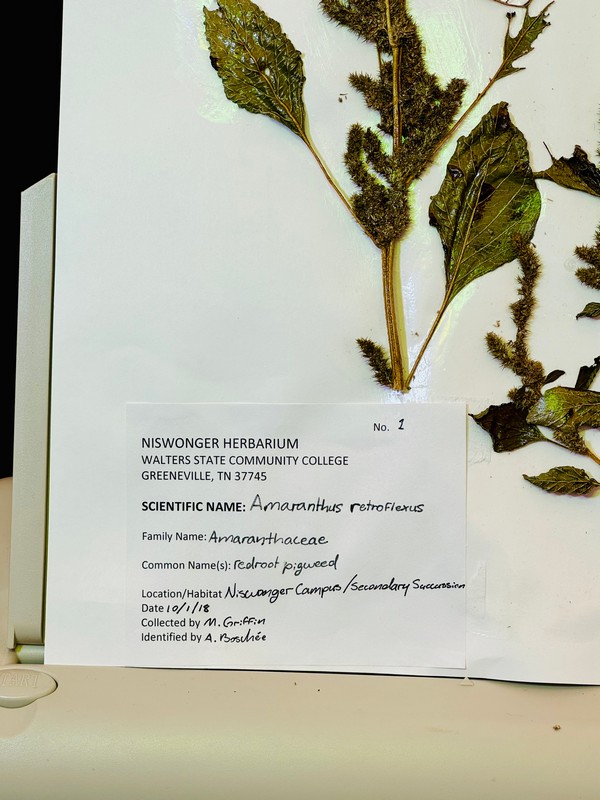 No. 1
NISWONGER HERBARIUM
WALTERS STATE COMMUNITY COLLEGE
GREENEVILLE, TN 37745
SCIENTIFIC NAME: Amaranthus retroflexus
Family Name: Amaranthaceae
Common Name(s): redroot pigweed
Location/Habitat Niswonger Campus/Secondary Succession
Date 10/1/18
Collected by M. Griffin
Identified by A. Boschée